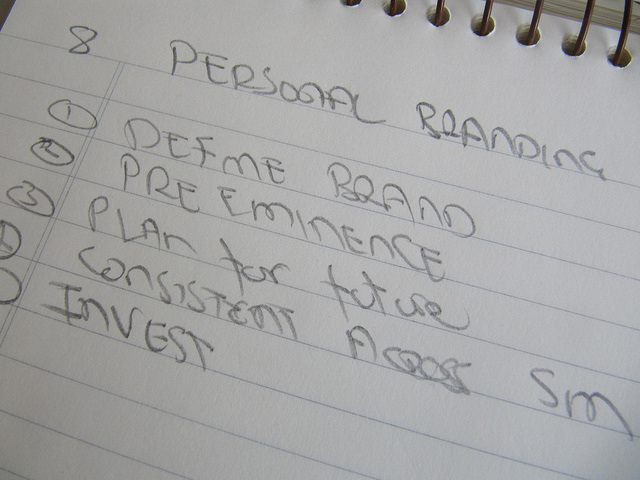 8 PERSONAL BRANDING
① DEFINE BRAND
② PRE EMINENCE
③ PLAN for future
CONSISTENT ACROSS SM
INVEST